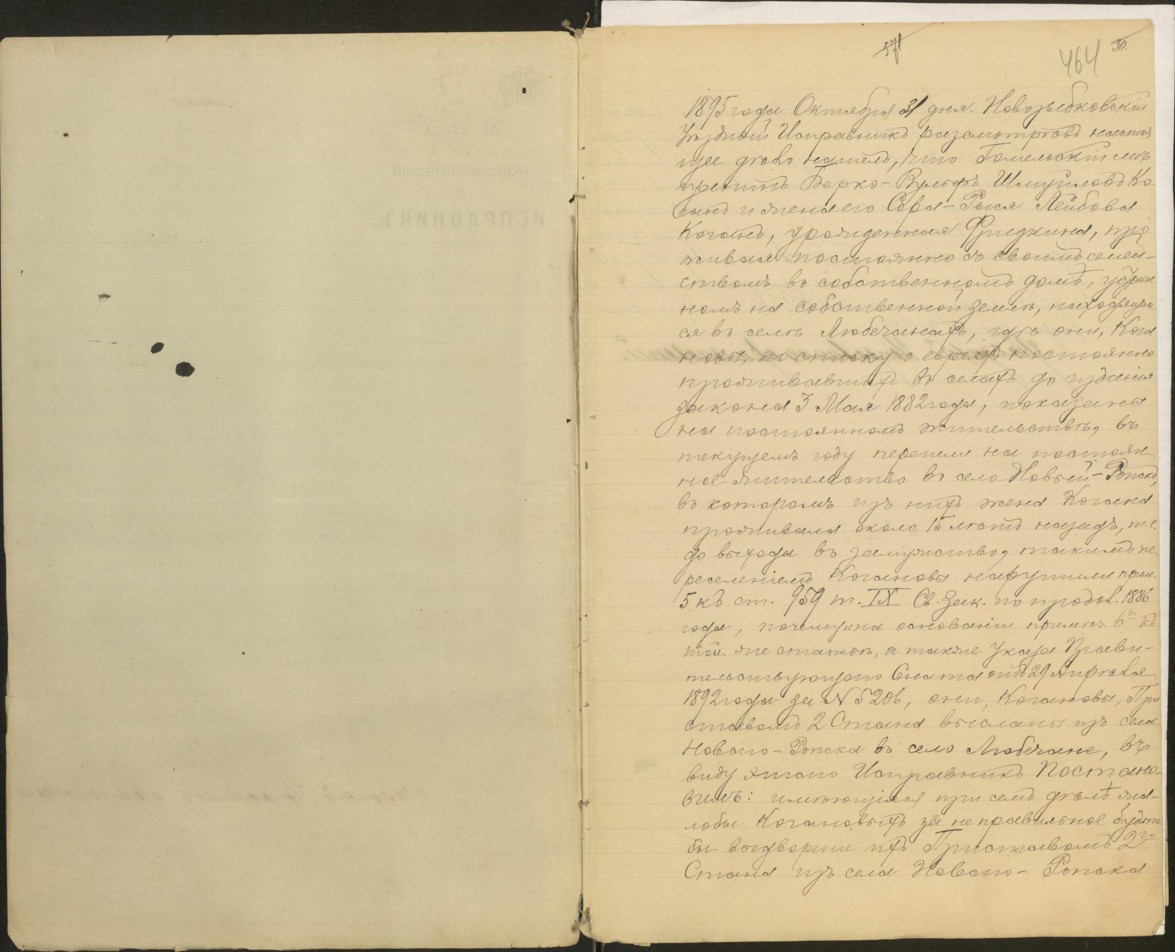 571
464
50.
1895 года Октября 31 дня. Новозыбковский
Уѣздный Исправникъ разсмотрѣвъ настоя-
щее дѣло нашелъ, что Гомельскій мѣ-
щанинъ Берко-Вульфъ Шмуйловъ Ко-
ганъ и жена его Сора-Рыся Лейбова
Коганъ, урожденная Фридкина, про-
живая постоянно съ своимъ семей-
ствомъ въ собственномъ домѣ, устроен
номъ на собственной землѣ, находящей
ся въ селѣ Любечанахъ, гдѣ они, Кога
новы, по списку о евреяхъ постоянно
проживавшихъ въ селахъ до изданія
закона 3 Мая 1882 года, показаны
на постоянномъ жительствѣ, въ
текущемъ году перешли на постоян
ное жительство въ село Новый-Ропскъ,
въ которомъ изъ нихъ жена Когана
проживала около 15 лѣтъ назадъ, т.е.
до выхода въ замужество, такимъ пе
реселеніемъ Когановы нарушили прим.
5 къ ст. 959 т. IX Св. Зак. по продол. 1886
года, почему на основаніи примѣч. 6 къ
той же статьѣ, а также Указа Прави-
тельствующаго Сената отъ 29 Апрѣля
1892 года за № 5206, они, Когановы, При
ставомъ 2 Стана высланы изъ села
Новаго-Ропска въ село Любечане, въ
виду этого Исправникъ Постано-
вилъ: имѣющіяся при семъ дѣлѣ жа-
лобы Когановыхъ за неправильное будто
бы выдвореніе ихъ Приставомъ 2го
Стана изъ села Новаго-Ропска
НОВОЗЫБКОВСКІЙ
ИСПРАВНИКЪ